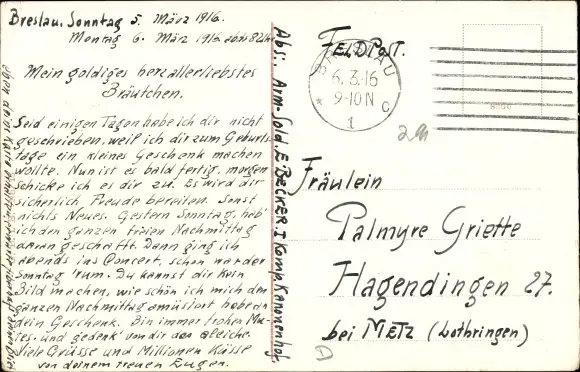 Breslau. Sonntag 5. März 1916.
Montag 6. März 1916 abds 8 Uhr
Mein goldiges herzallerliebstes
Bräutchen.
Seid einigen Tagen habe ich dir nicht
geschrieben, weil ich dir zum Geburts
tage ein kleines Geschenk machen
wollte. Nun ist es bald fertig, morgen
schicke ich es dir zu. Es wird dir
sicherlich Freude bereiten. Sonst
nichts Neues. Gestern Sonntag, hab'
ich den ganzen freien Nachmittag
daran geschafft. Dann ging ich
abends ins Concert, schon war der
Sonntag 'rum. Du kannst dir kein
Bild machen, wie schön ich mich den
ganzen Nachmittag amüsiert habe an
dein Geschenk. Bin immer frohen Mu-
tes. und gedenk' von dir das gleiche.
Viele Grüsse und Millionen Küsse
von deinem treuen Eugen.
Abs: Arm. Sold. E. BECKER. I Komp. Kanonenhof.
FELDPOST.
BRESLAU
6.3.16
9-10 N
* 1 c
Fräulein
Palmyre Griette
Hagendingen 27.
bei METZ (Lothringen)